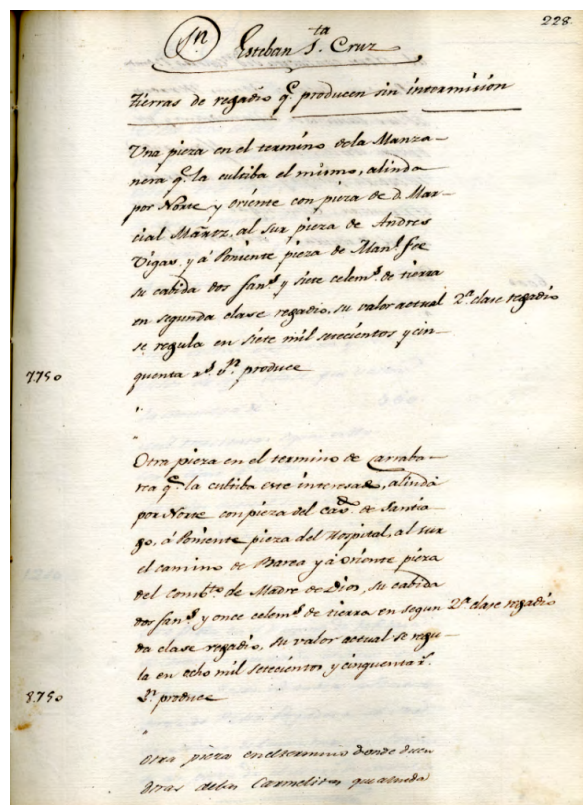 228.
Sn Esteban Sta Cruz
tierras de regadio q.e producen sin intermisión
Una pieza en el termino de la Manza-
nera q.e la cultiba el mismo, alinda
por Norte y oriente con pieza de d. Mar-
cial Mařtz, al sur pieza de Andres
Vigas, y á Poniente pieza de Man.l Foe
su cabida dos fan.s y siete celem.s de tierra
en segunda clase regadio, su valor actual 2.a clase regadio
se regula en siete mil setecientos y cin-
7750 quenta r.s v.n produce
"
"
Otra pieza en el termino de Carraba-
rea q.e la cultiba este interesado, alinda
por Norte con pieza del cav.do de Santia-
go, á Poniente pieza del Hospital, al sur
el camino de Barea y á oriente pieza
del comb.to de Madre de Dios, su cabida
dos fan.s y once celem.s de tierra en segun 2.a clase regadio
da clase regadio, su valor actual se regu-
la en ocho mil setecientos y cinquenta r.s
8750 v.n produce
"
Otra pieza en el termino donde dicen
atras de las Carmelitas que alinda